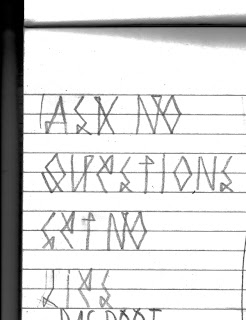 ASK NO
QUESTIONS
GET NO
LIES